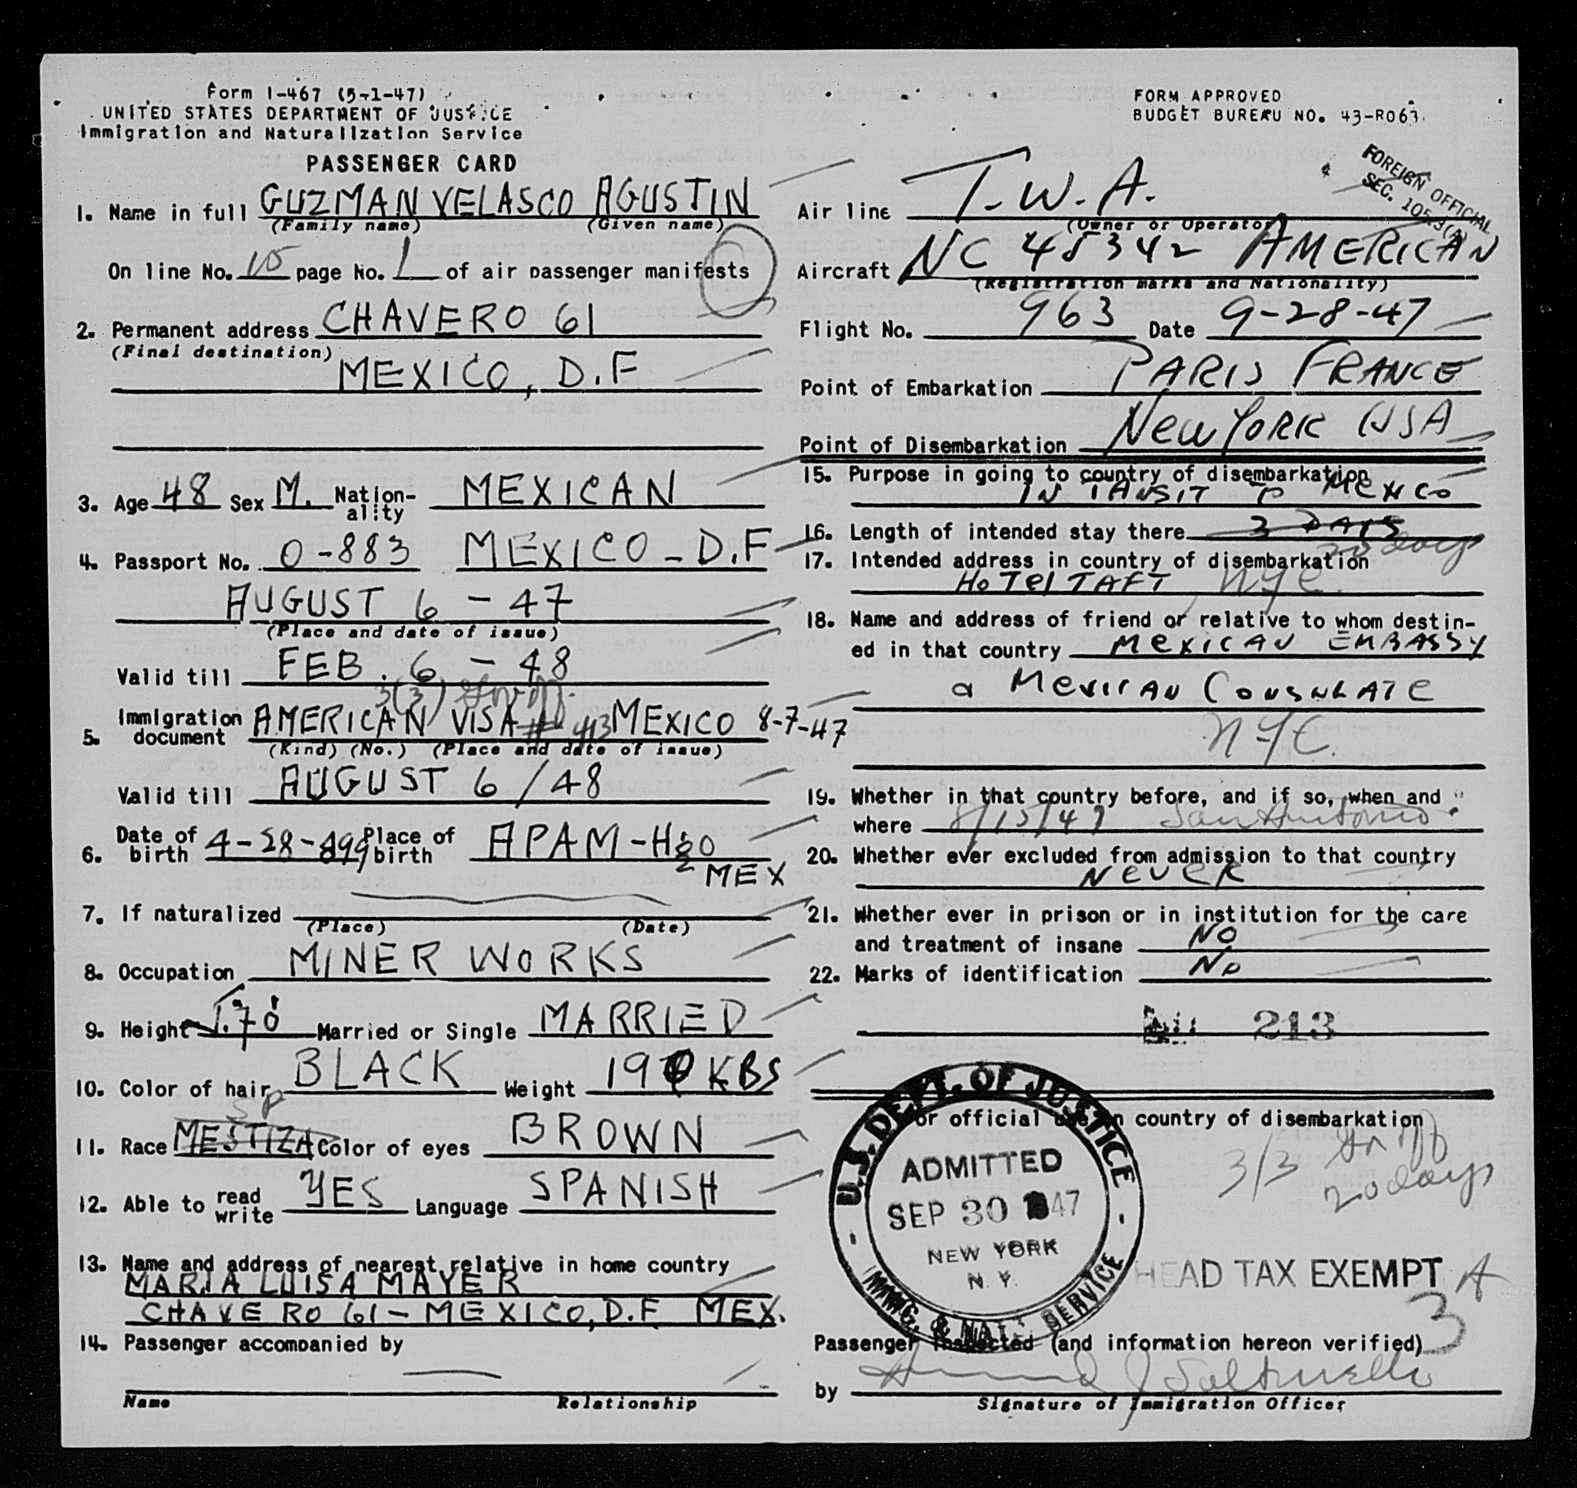 Form I-467 (5-1-47)
UNITED STATES DEPARTMENT OF JUSTICE
Immigration and Naturalization Service
PASSENGER CARD
1. Name in full GUZMAN VELASCO AGUSTIN
(Family name) (Given name)
On line No. 15 page No. 1 of air passenger manifests
2. Permanent address CHAVERO 61
(Final destination)
MEXICO, D.F
3. Age 48 Sex M. Nation-ality MEXICAN
4. Passport No. O-883 MEXICO-D.F
AUGUST 6-47
(Place and date of issue)
Valid till FEB. 6-48
3(3)
5. Immigration document AMERICAN VISA # 413 MEXICO 8-7-47
(Kind) (No.) (Place and date of issue)
Valid till AUGUST 6/48
6. Date of birth 4-28-899 Place of birth APAM-Hgo
MEX
7. If naturalized
(Place) (Date)
8. Occupation MINER WORKS
9. Height 1.70 Married or Single MARRIED
10. Color of hair BLACK Weight 190 KBS
Sp
11. Race MESTIZA Color of eyes BROWN
12. Able to read write YES Language SPANISH
13. Name and address of nearest relative in home country
MARIA LUISA MAYER
CHAVERO 61-MEXICO, D.F MEX.
14. Passenger accompanied by
Name Relationship
FORM APPROVED
BUDGET BUREAU NO. 43-R063.
FOREIGN OFFICIAL
SEC.
Air line T.W.A.
(Owner or Operator)
Aircraft NC 45342 AMERICAN
(Registration marks and Nationality)
Flight No. 963 Date 9-28-47
Point of Embarkation PARIS FRANCE
Point of Disembarkation New YORK USA
15. Purpose in going to country of disembarkation
IN TANSIT TO MEXICO
16. Length of intended stay there 3 DAYS
20 days
17. Intended address in country of disembarkation
HoTel TAFT, NYC.
18. Name and address of friend or relative to whom destin-
ed in that country MexicAN EMBASSY
a MexicAN CONSULATE
NYC.
19. Whether in that country before, and if so, when and
where 8/15/47 San Antonio
20. Whether ever excluded from admission to that country
NeveR
21. Whether ever in prison or in institution for the care
and treatment of insane NO
22. Marks of identification No
213
For official use in country of disembarkation
U.S. DEPT. OF JUSTICE
ADMITTED
SEP 30 1947
NEW YORK
N.Y.
IMMIG. & NAT. SERVICE
3/3
20 days
HEAD TAX EXEMPT A
3
Passenger inspected (and information hereon verified)
by
Signature of Immigration Officer